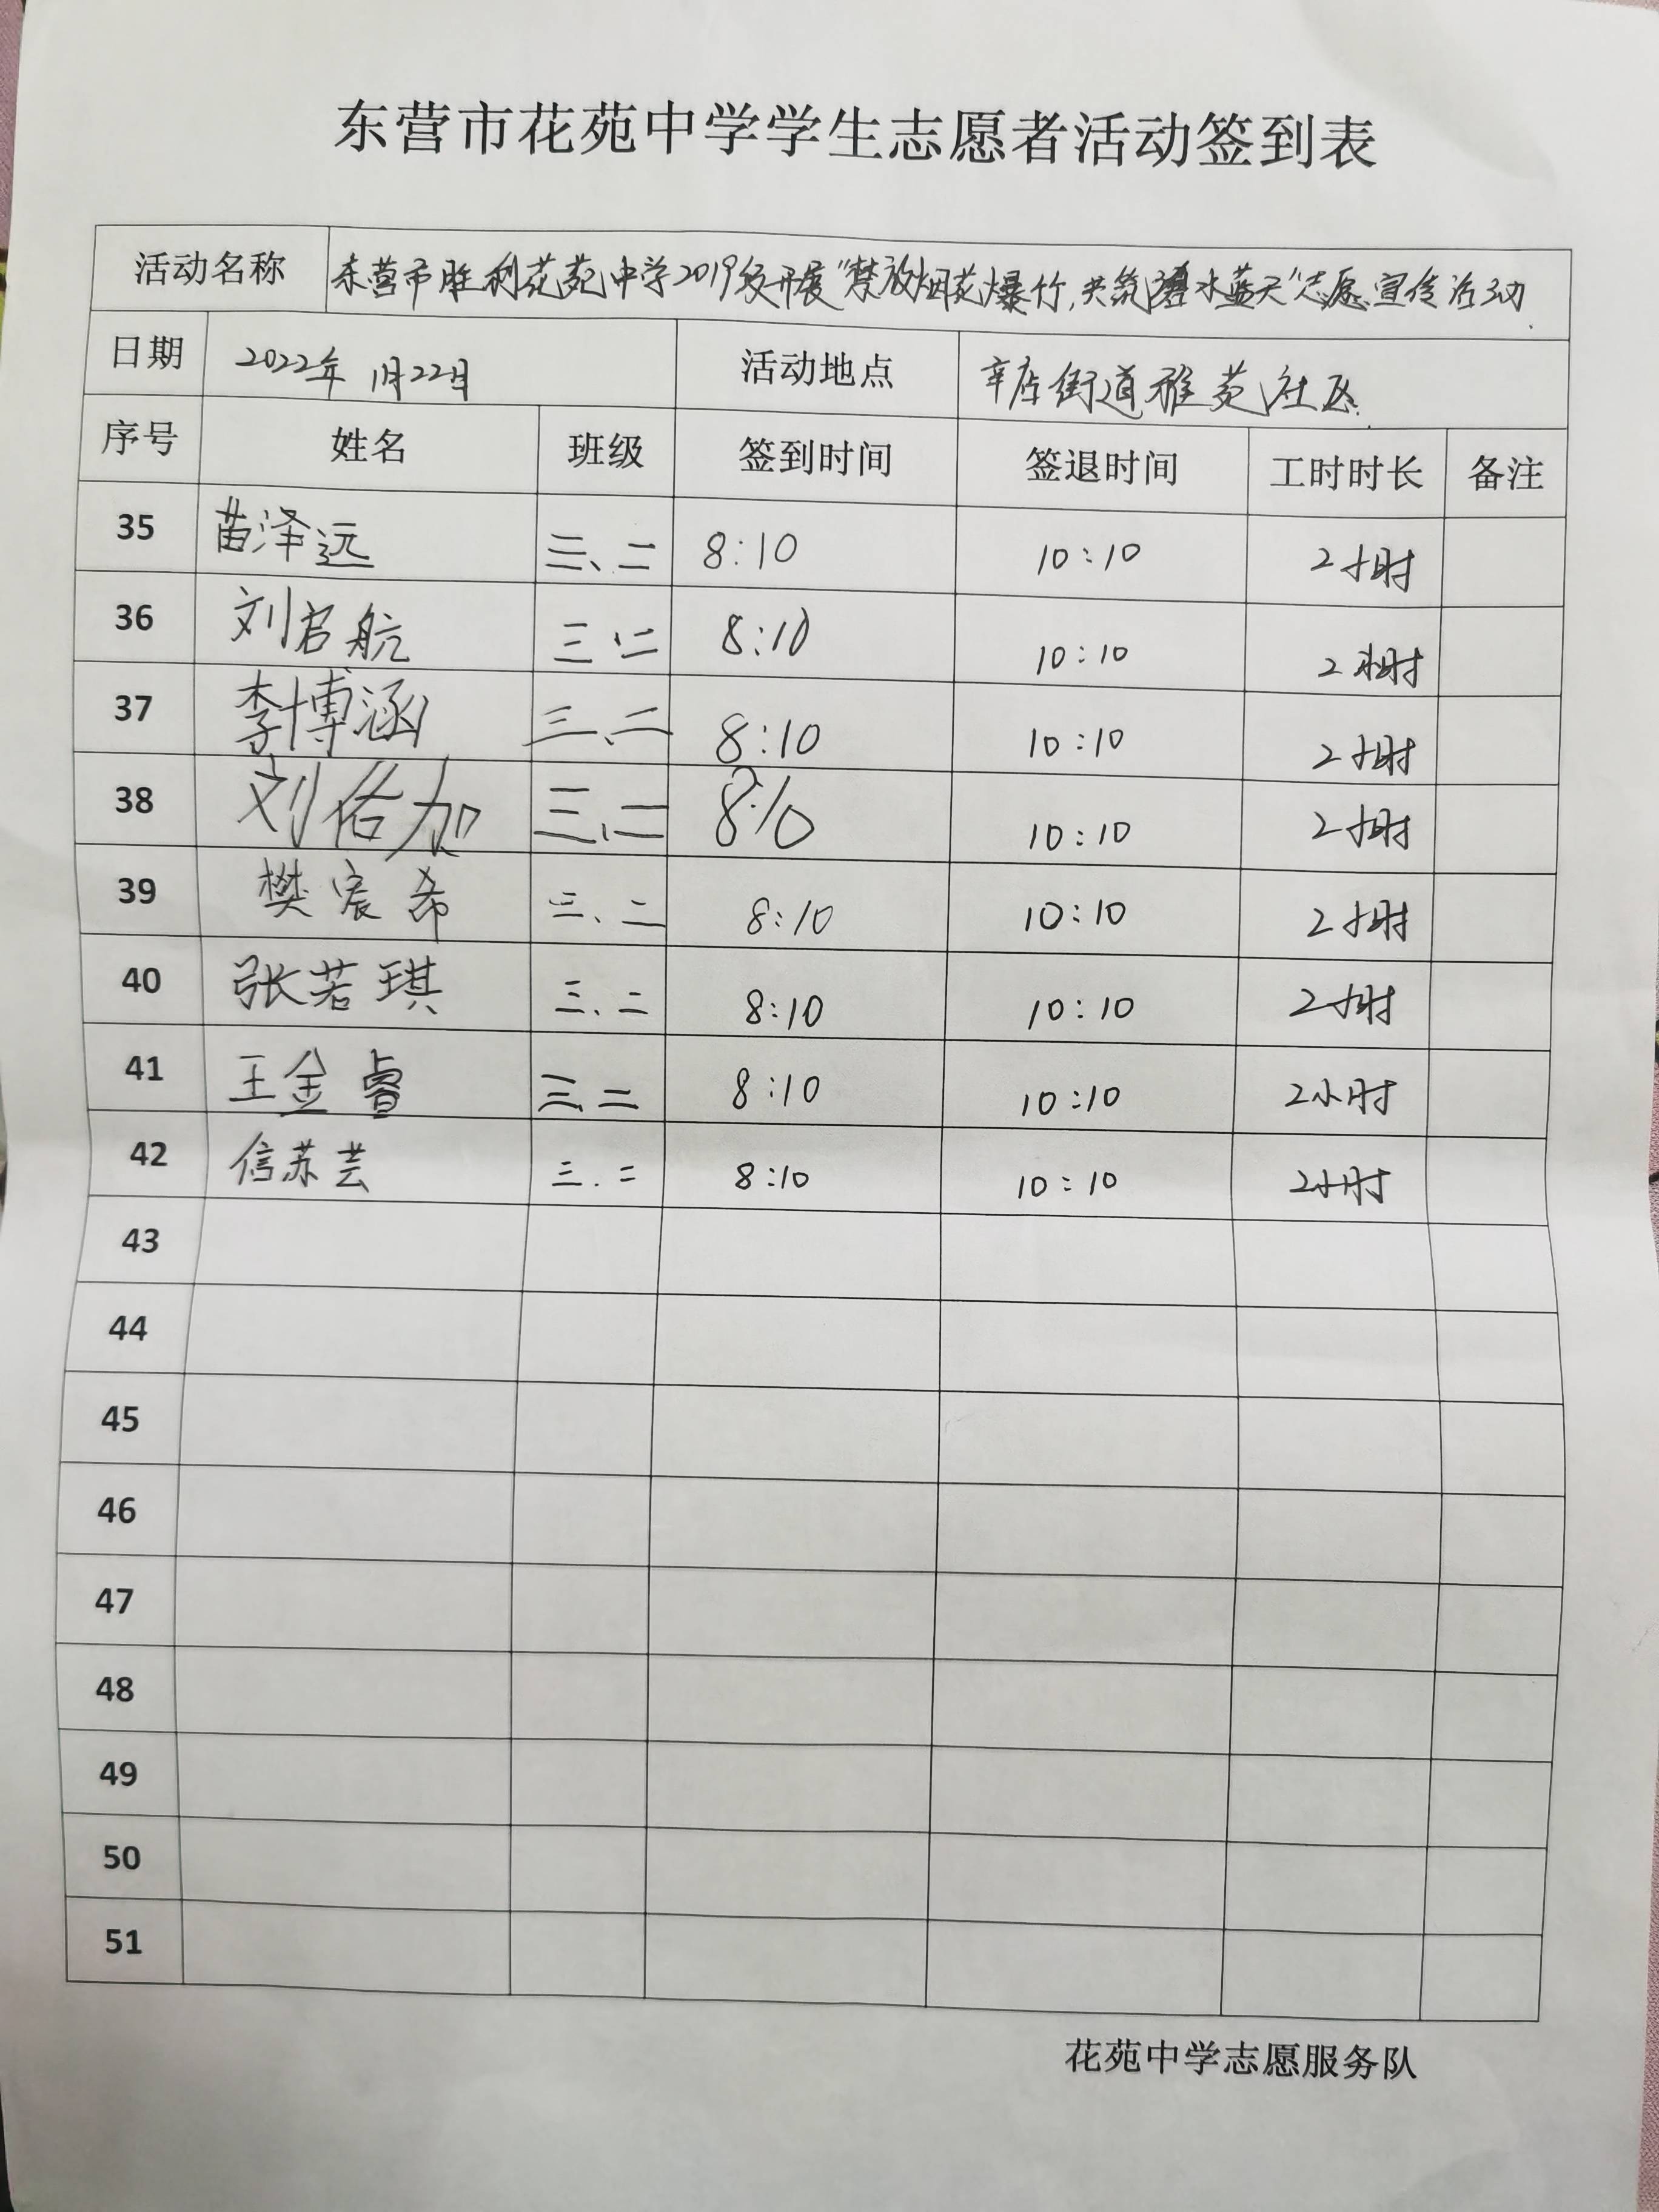 东营市花苑中学学生志愿者活动签到表
活动名称 东营市胜利花苑中学2019级开展“禁放烟花爆竹，共筑碧水蓝天”志愿宣传活动
日期 2022年1月22日 活动地点 辛店街道雅苑社区
序号 姓名 班级 签到时间 签退时间 工时时长 备注
35 苗泽远 三、二 8:10 10:10 2小时
36 刘启航 三、二 8:10 10:10 2小时
37 李博涵 三、二 8:10 10:10 2小时
38 刘佑加 三、二 8:10 10:10 2小时
39 樊宸希 三、二 8:10 10:10 2小时
40 张若琪 三、二 8:10 10:10 2小时
41 王金睿 三、二 8:10 10:10 2小时
42 信苏芸 三、二 8:10 10:10 2小时
43
44
45
46
47
48
49
50
51
花苑中学志愿服务队